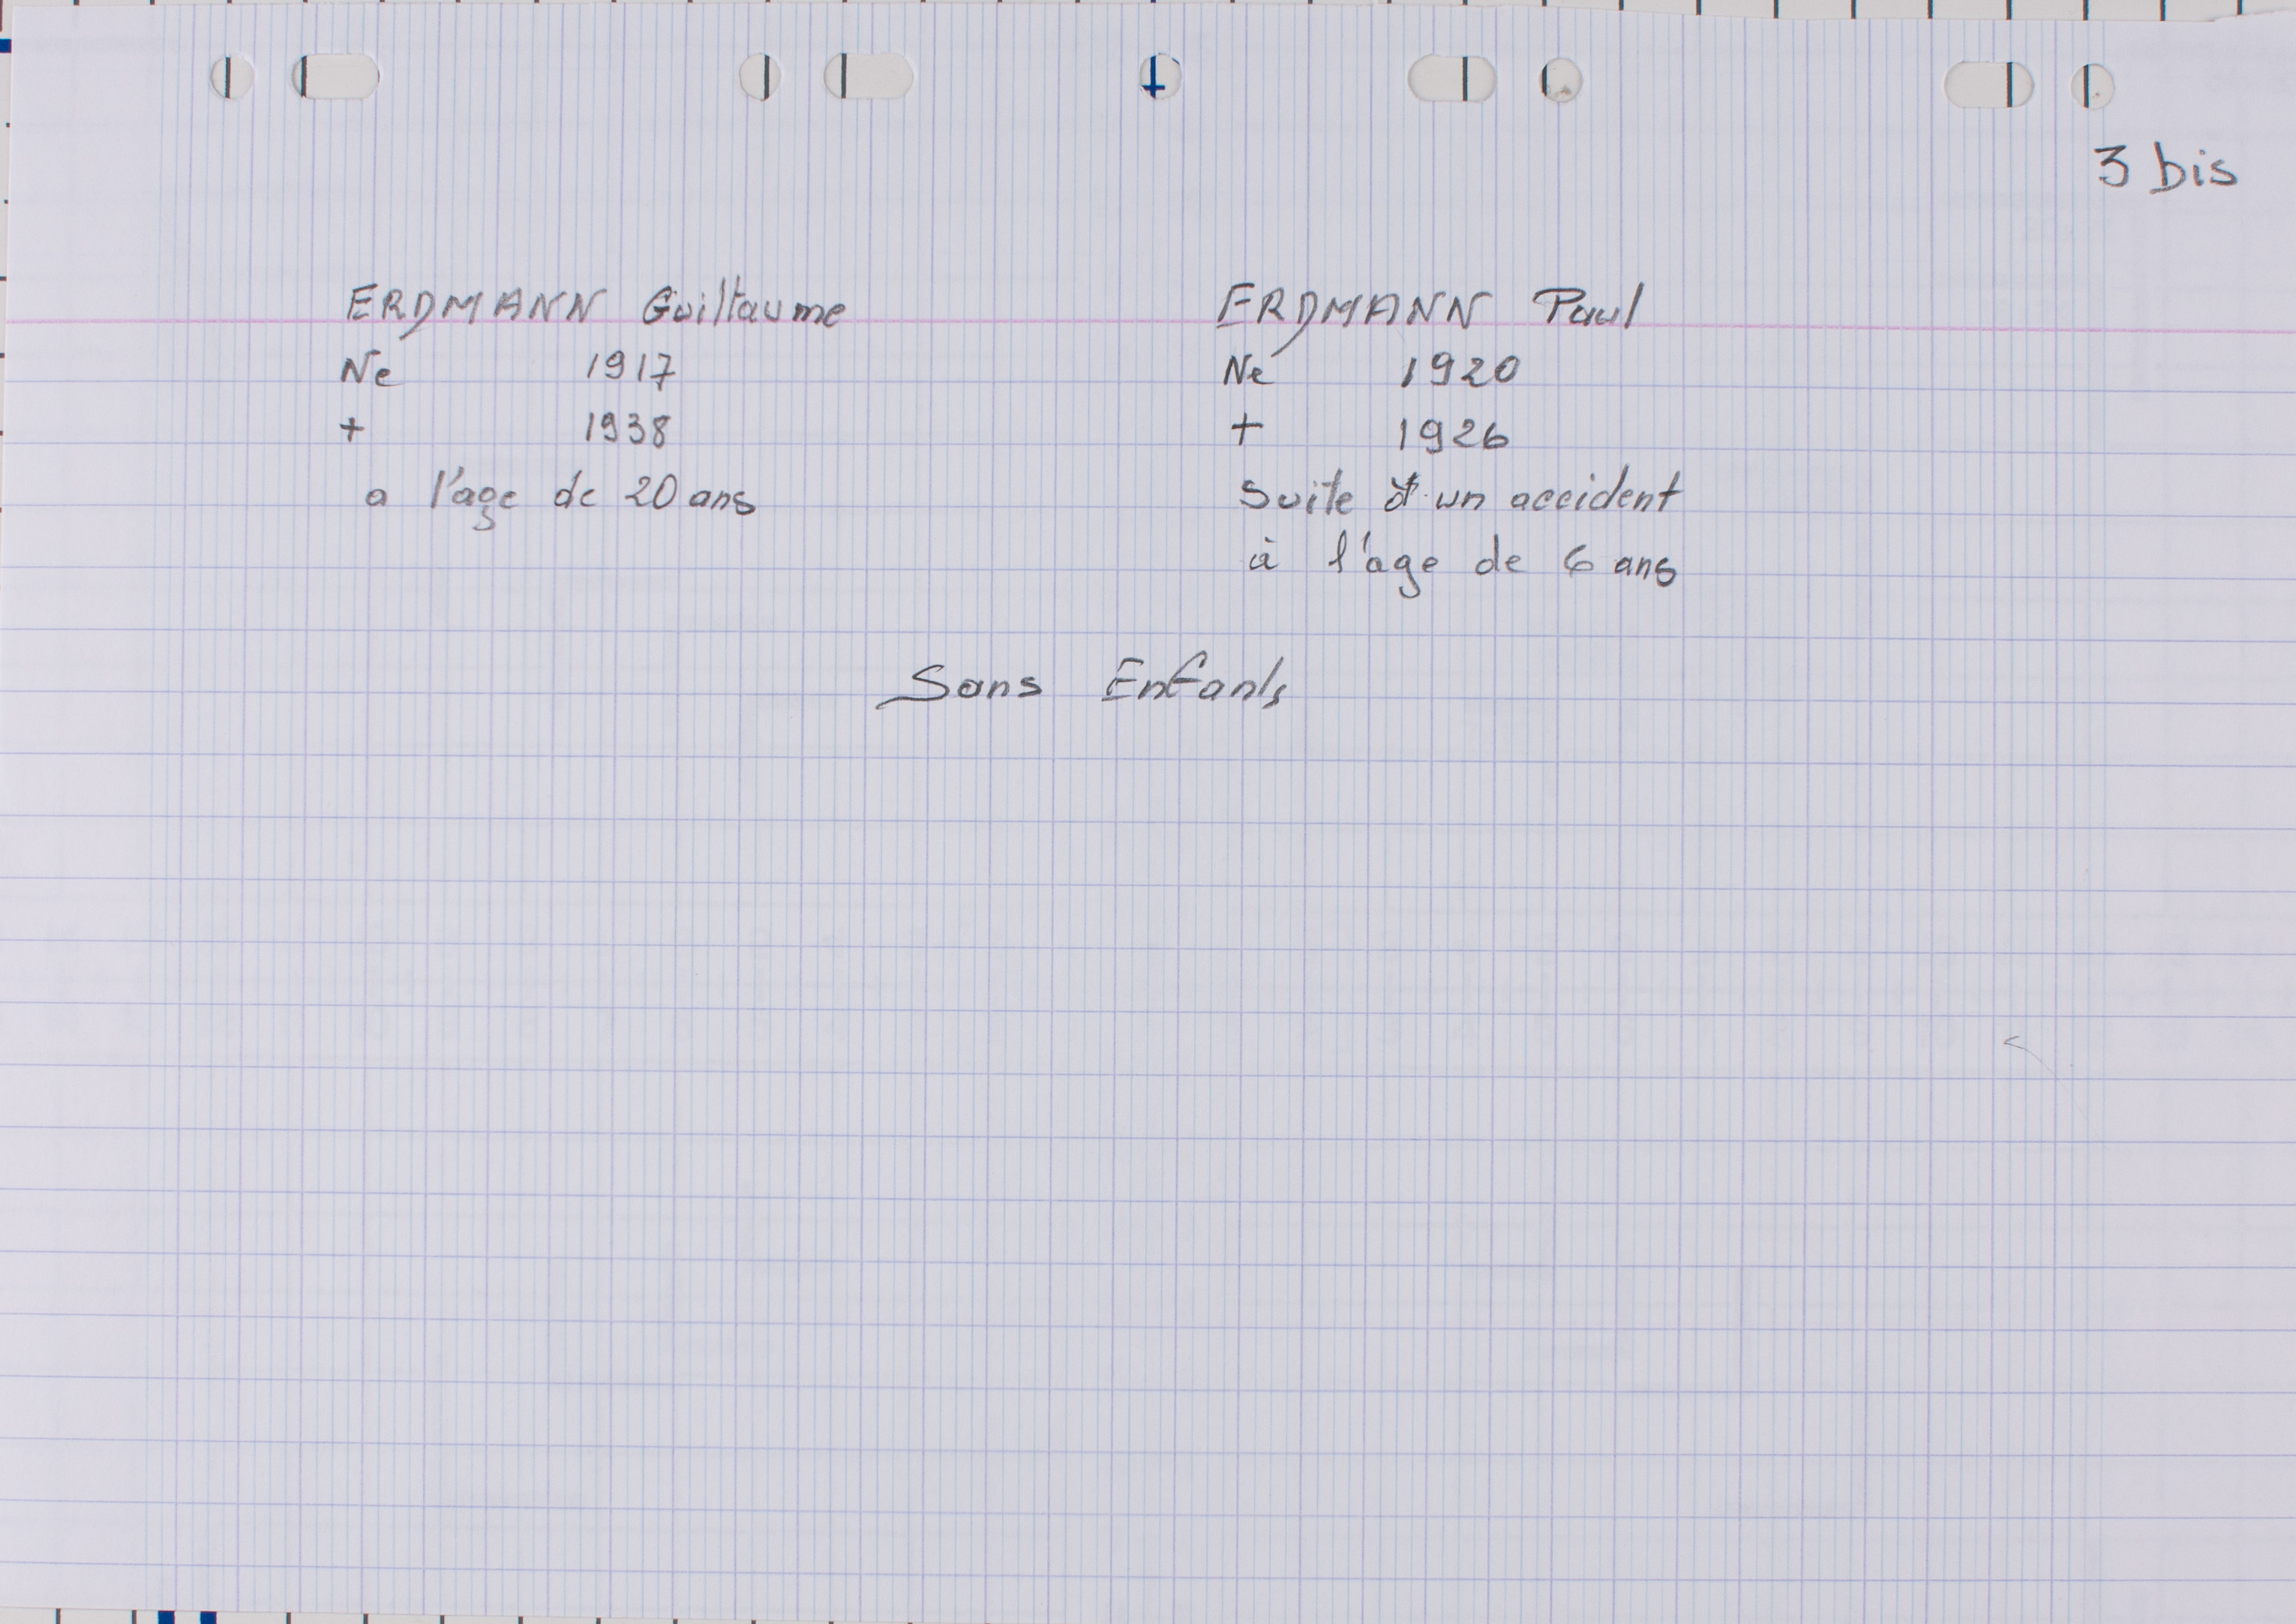 3 bis
ERDMANN Guillaume
Ne 1917
+ 1938
a l'age de 20 ans
ERDMANN Paul
Ne 1920
+ 1926
suite à un accident
à l'age de 6 ans
Sans Enfants